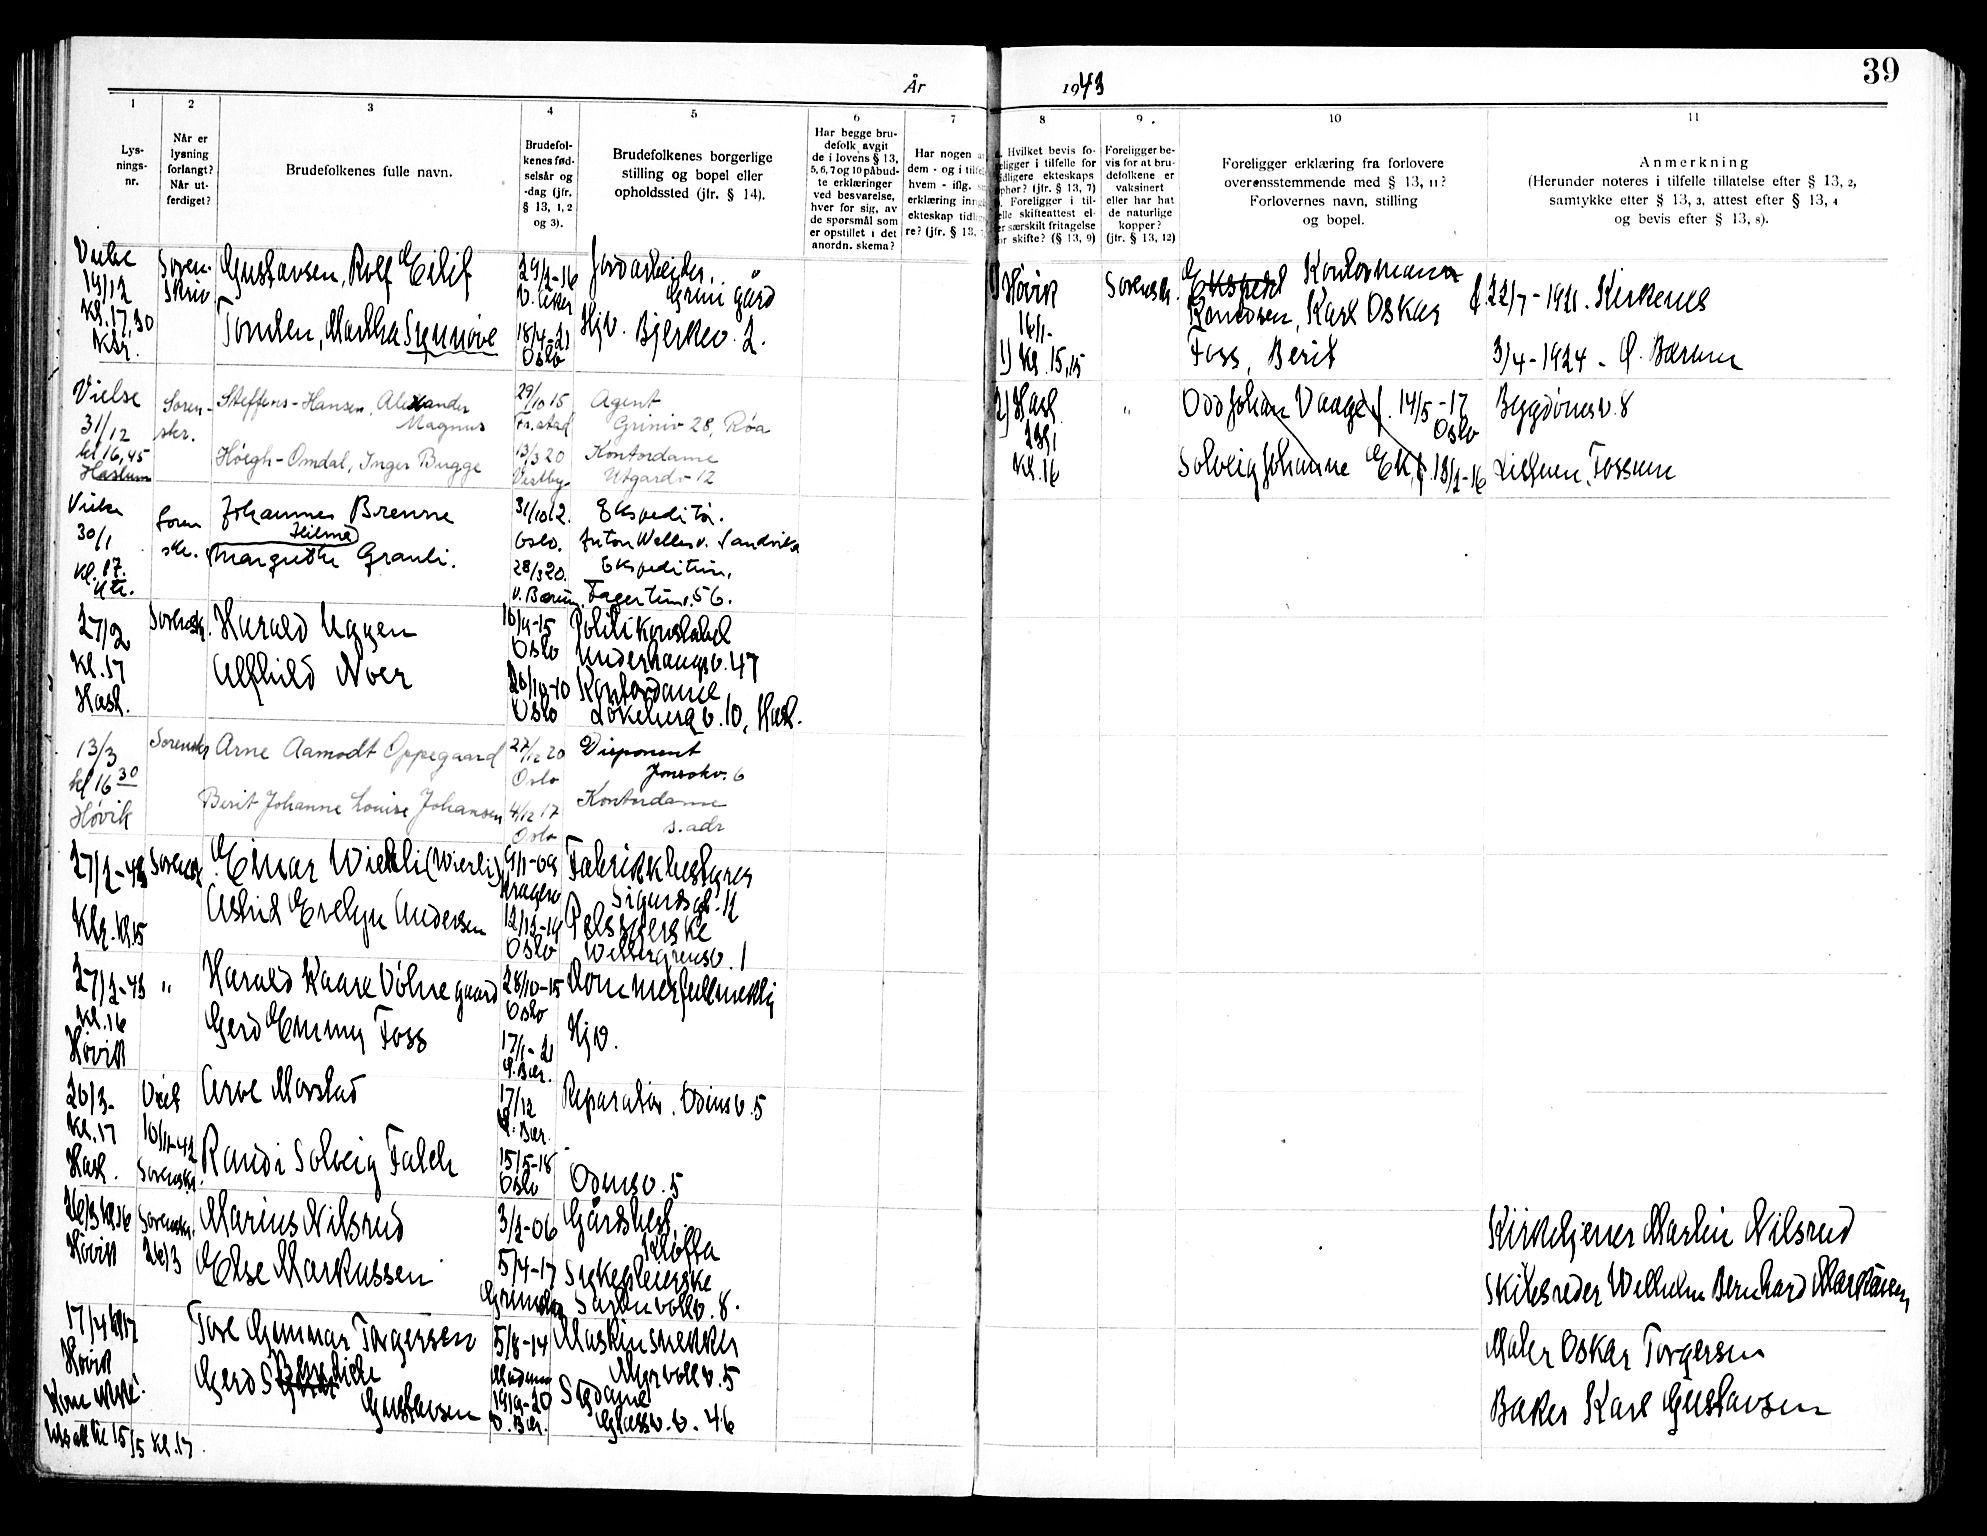 39
År 1943
1 2 3 4 5 6 7 8 9. 10 11
Lys-
nings-
nr.
Når er
lysning
forlangt?
Når ut-
ferdiget?
Brudefolkenes fulle navn.
Brudefol-
kenes fød-
selsår og
-dag (jfr.
§ 13, 1, 2
og 3).
Brudefolkenes borgerlige
stilling og bopel eller
opholdssted (jfr. § 14).
Har begge bru-
defolk avgit
de i lovens § 13,
5, 6, 7 og 10 påbud-
te erklæringer
ved besvarelse,
hver for sig, av
de spørsmål som
er opstillet i det
anordn. skema?
Har nogen
dem - og i tilf
hvem - iflg.
erklæring inng
ekteskap tidlig
re? (jfr. § 13,
Hvilket bevis fo-
religger i tilfelle for
tidligere ekteskaps
ophør? (jfr. § 13, 7)
Foreligger i til-
felle skifteattest el-
er særskilt fritagelse
or skifte? (§ 13, 9)
Foreligger be-
vis for at bru-
defolkene er
vaksinert
eller har hat
de naturlige
kopper?
(jfr. § 13, 12)
Foreligger erklæring fra forlovere
overensstemmende med § 13, 11?
Forlovernes navn, stilling
og bopel.
Anmerkning
(Herunder noteres i tilfelle tillatelse efter § 13, 2,
samtykke efter § 13, 3, attest efter § 13, 4
og bevis efter § 13, 8).
Vielse
19/12
Kl. 17,30
Kbr.
Soren-
skriv.
Gustavsen, Rolf Eilif
Tomten, Martha Synnøve
29/2-16
V. Aker
18/4-21
Oslo
Jordarbeider,
Grini gård
Hjv. Bjerkev. 2.
Vielse
31/12
kl 16,45
Haslum
Soren-
skr.
Steffens-Hansen, Alexander
Magnus
Høegh-Omdal, Inger Bugge
29/10 15
Fr.stad
13/3 20
Vestby
Agent
Griniv 28, Røa
Kontordame
Utgardv 12
Vielse
30/1
Kl. 17.
Soren
skr.
Johannes Brenne
Hilma
Margrethe Granli.
31/10 12.
Oslo.
28/3 20.
V. Bærum.
Ekspeditør.
Anton Wallesv. Sandvika
Ekspeditrise,
Fagertunv. 56.
27/2
Kl. 17
Hasl.
Sorenskr.
Harald Uggen
Alfhild Noer
Oslo
Oslo
Politikonstabel
Underhaugsv. 47
Kontordame
Løkebergv. 10, Hasl.
13/3
kl 16 30
Høvik
Sorenskr
Arne Aamodt Oppegaard
Berit Johanne Louise Johansen
27/12 20
Oslo
4/12 17
Oslo
Disponent
Jonsokv. 6
Kontordame
s. adr
27/2-43
Kbr. kl 15
Sorenskr
Einar Wierli (Wierli)
Astrid Evelyn Andersen
9/1-09
Kragerø
12/12-19
Oslo
Fabrikkbestyrer
Sigurdsgt. 12
Pelssyerske
Wettergrensv. 1
27/2-43
Kl. 16
Høvik
"
Harald Kaare Volnegaard
Gerd Emmy Foss
28/10-15
Oslo
17/1-21
Ø. Bær.
Dommerfullmektig
Hjv.
20/3-
Kl. 17
Hasl.
Utst
10/11-42
Sorenskr.
Arve Morstad
Randi Solveig Falch
17/12
Ø. Bær.
15/5-18
Oslo
Reparatør. Odinsv. 5
Odinsv. 5
26/3 kl 16
Høvik
Sorenskr.
26/3
Marius Nilsrud
Else Markussen
3/2-06
5/4-17
Gårdsbest.
Kløfta
Sykepleierske
8.
17/4 kl 17
Høvik
15/5 Kl. 17.
Tore Gunnar Torgersen
Gerd
Gustavsen
5/8-14
19/9-20
V. Bær.
Maskinsnekker
Myrvollv. 5
Sydame
Glassv.v. 46
1) Høvik
16/1-
1) Kl. 15,15
Sorenskr.
Kontormann
Knudsen, Karl Oskar f. 22/7-1921. Kirkenes
Foss, Berit 3/4-1924 - Ø. Bærum
2) Hasl.
Kl. 16
"
Odd Johan Vaage f. 14/5-17
Oslo
Bygdønesv. 8
Solveig Johanne Ek, f. 13/2-16 Fossum
Kirketjener Martin Nilsrud
Skibsreder Wilhelm Bernhard Markussen
Maler Oskar Torgersen
Baker Karl Gustavsen